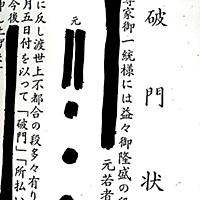 破門状
尊家御一統様には益々御隆盛の段
元若者
元
に反し渡世上不都合の段多々有り
月五日付を以って「破門」「所払い
今後